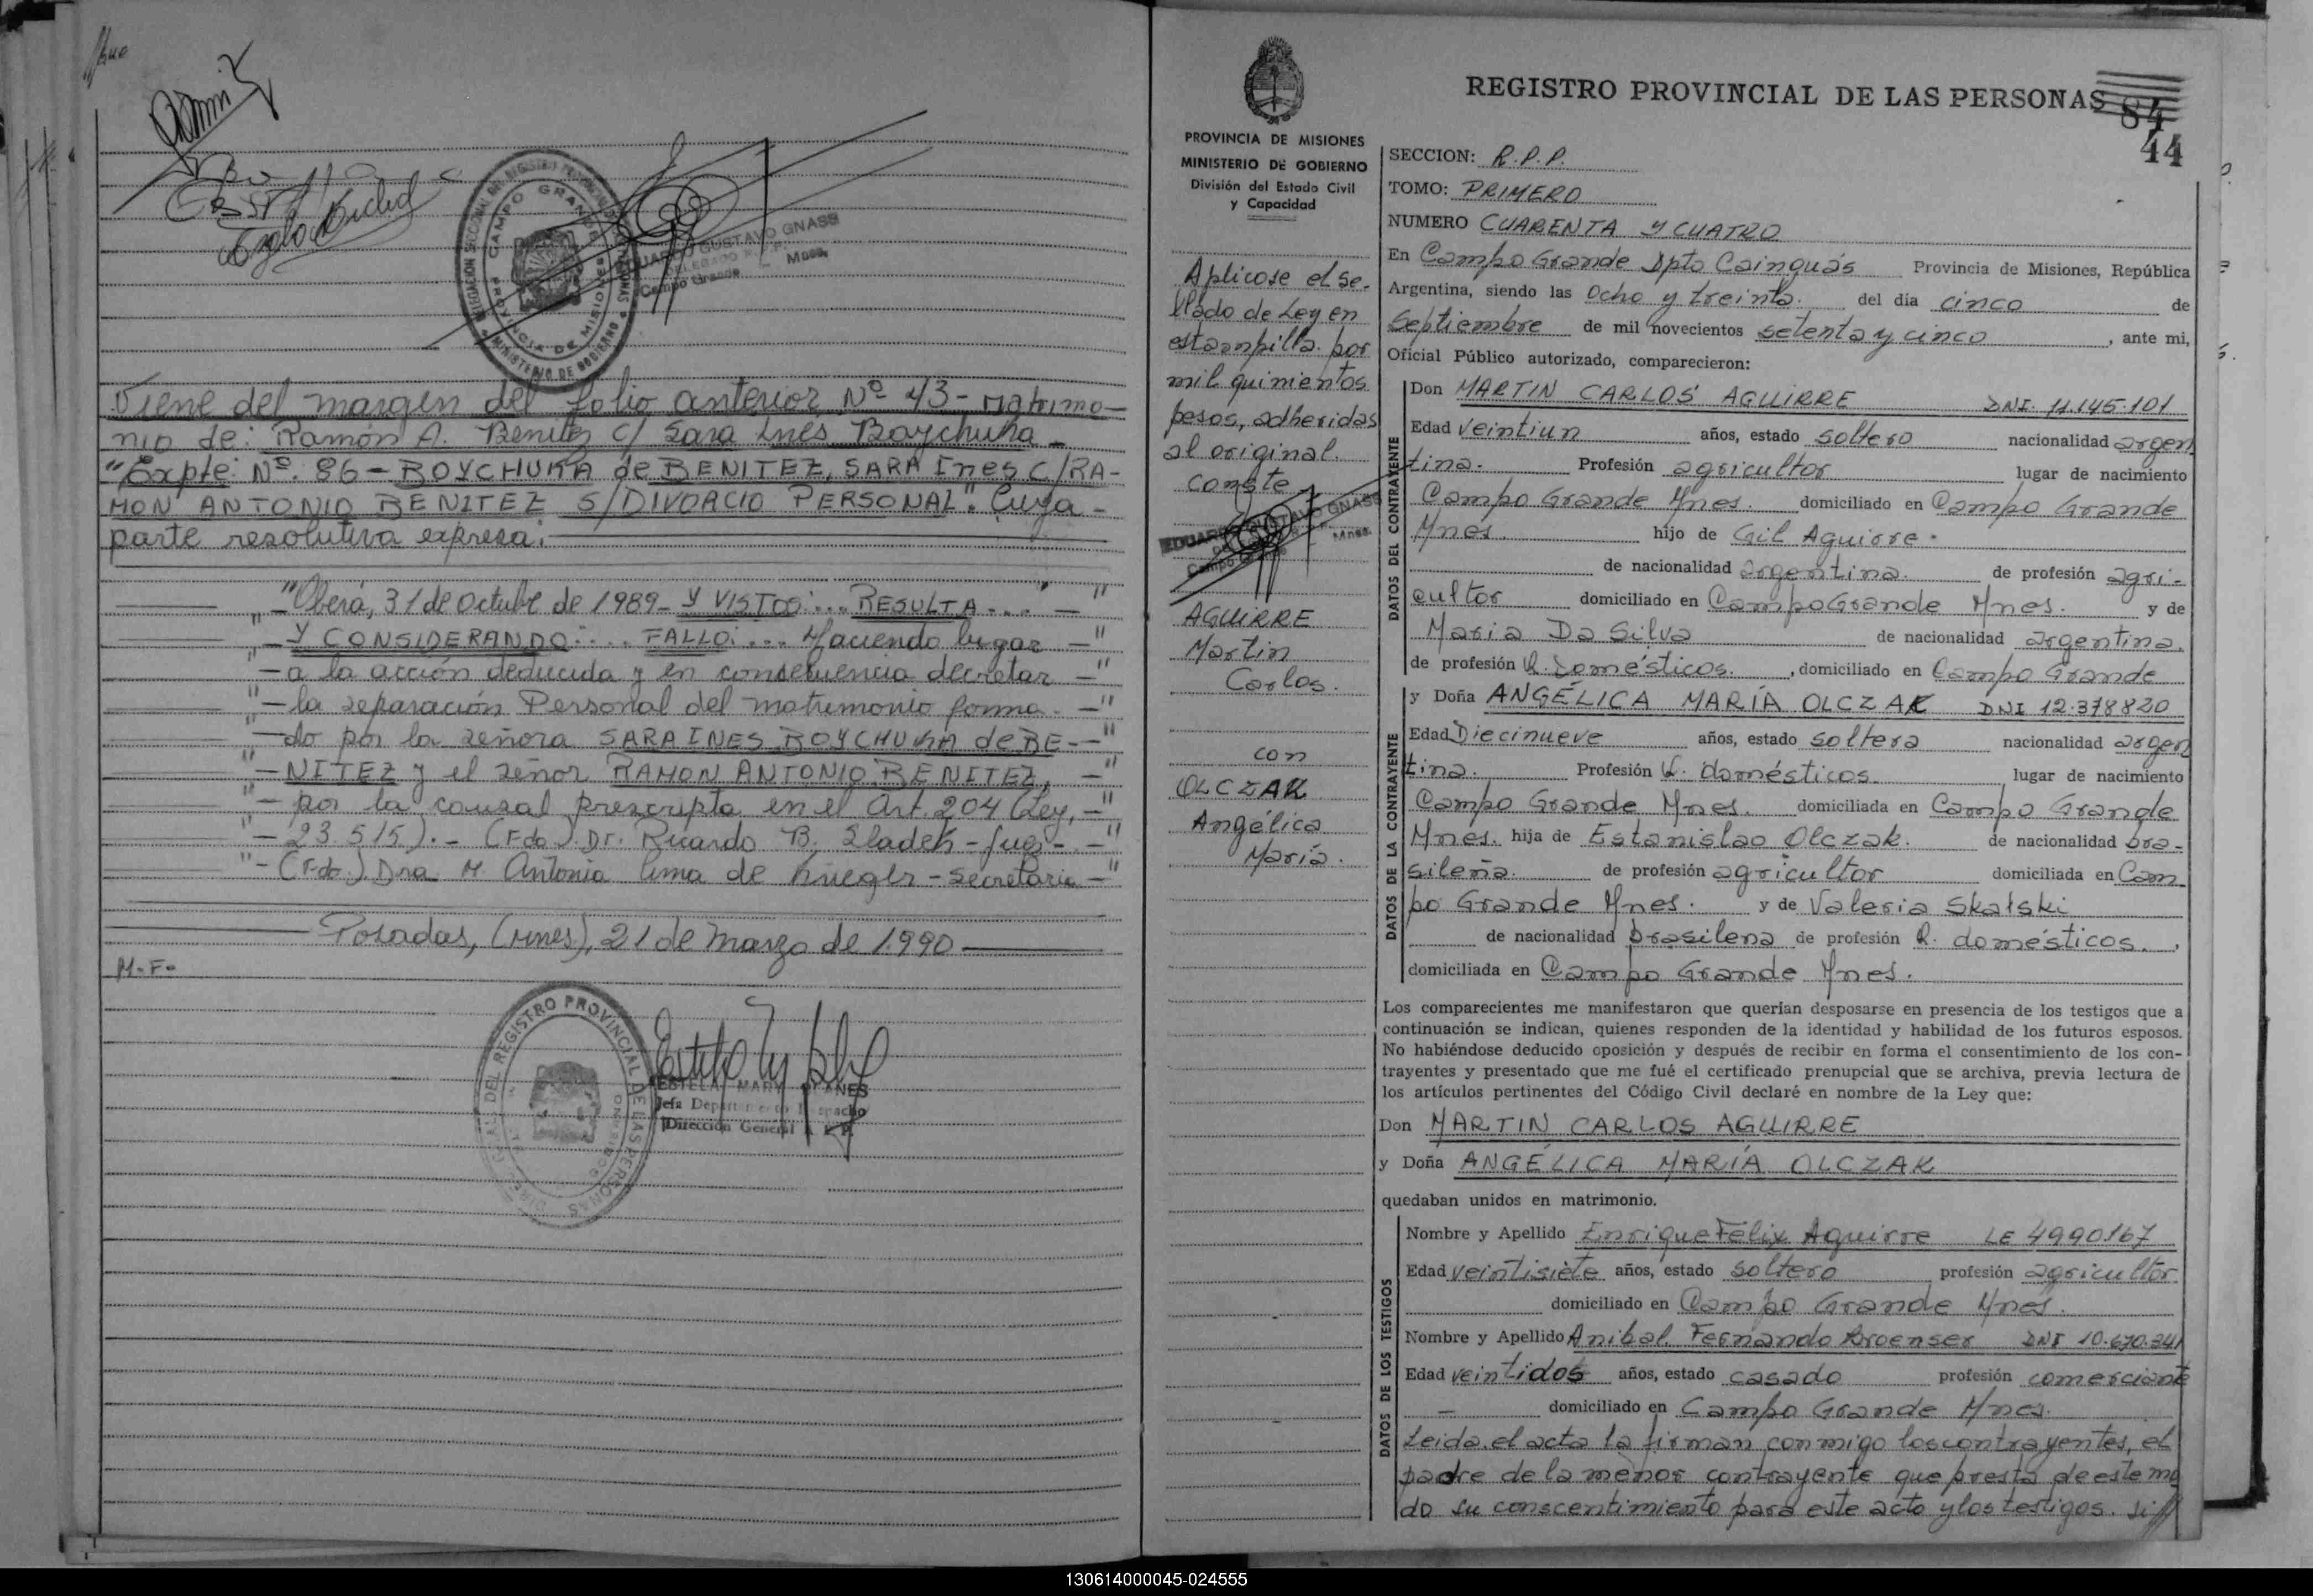 EDUARDO GUSTAVO GNASS
DELEGADO R. P. P.
Campo Grande - Mnes.
CAMPO GRANDE
PROVINCIA DE MISIONES
MINISTERIO DE GOBIERNO
Viene del margen del folio anterior Nº 43- Matrimo-
nio de: Ramón A. Benitez c/ Sara Ines Boychuka-
"Expte: Nº. 86- BOYCHUKA de BENITEZ, SARA Ines C/RA-
MON ANTONIO BENITEZ S/DIVORCIO PERSONAL". Cuya-
parte resolutiva expresa:
"Oberá, 31 de Octubre de 1989- Y VISTOS:... RESULTA..." - "
"- Y CONSIDERANDO:... FALLO:... Haciendo lugar - "
"- a la acción deducida y en consecuencia decretar - "
"- la separación Personal del matrimonio forma- - "
"- do por la señora SARA INES BOYCHUKA de BE- - "
"- NITEZ y el señor RAMON ANTONIO BENITEZ, - "
"- por la causal prescripta en el Art. 204 (Ley, - "
"- 23.515).- (Fdo). Dr. Ricardo B. Sladek - Juez - - "
"- (Fdo.). Dra M. Antonia Lima de Krueger - Secretaria - "
Posadas, (Mnes), 21 de Marzo de 1.990
M.F.
DEL REGISTRO PROVINCIAL DE LAS PERSONAS
ESTELA MARY PLANES
Jefa Departamento Despacho
Dirección General R. P. P.
REGISTRO PROVINCIAL DE LAS PERSONAS
84
44
PROVINCIA DE MISIONES
MINISTERIO DE GOBIERNO
División del Estado Civil
y Capacidad
Aplicose el Se-
llado de Ley en
estampilla por
mil quinientos
pesos, adheridas
al original.
Conste
EDUARDO GUSTAVO GNASS
Campo Grande Mnes.
AGUIRRE
Martin
Carlos.
con
OLCZAK
Angélica
María.
SECCION: R.P.P.
TOMO: PRIMERO
NUMERO CUARENTA Y CUATRO
En Campo Grande Dpto Cainguás Provincia de Misiones, República
Argentina, siendo las Ocho y treinta. del día cinco de
Septiembre de mil novecientos setenta y cinco, ante mi,
Oficial Público autorizado, comparecieron:
DATOS DEL CONTRAYENTE
Don MARTIN CARLOS AGUIRRE DNI. 11.145.101
Edad Veintiun años, estado soltero nacionalidad argen
tina. Profesión agricultor lugar de nacimiento
Campo Grande Mnes. domiciliado en Campo Grande
Mnes. hijo de Gil Aguirre.
de nacionalidad argentina. de profesión agri-
cultor domiciliado en Campo Grande Mnes. y de
Maria Da Silva de nacionalidad argentina.
de profesión Q. Domésticos., domiciliado en Campo Grande
DATOS DE LA CONTRAYENTE
y Doña ANGÉLICA MARÍA OLCZAK DNI 12.378820
Edad Diecinueve años, estado soltera nacionalidad argen
tina. Profesión Q. domésticos. lugar de nacimiento
Campo Grande Mnes. domiciliada en Campo Grande
Mnes. hija de Estanislao Olczak. de nacionalidad bra-
sileña. de profesión agricultor domiciliada en Cam
po Grande Mnes. y de Valeria Skalski
de nacionalidad brasilena de profesión Q. domésticos.,
domiciliada en Campo Grande Mnes.
Los comparecientes me manifestaron que querían desposarse en presencia de los testigos que a
continuación se indican, quienes responden de la identidad y habilidad de los futuros esposos.
No habiéndose deducido oposición y después de recibir en forma el consentimiento de los con-
trayentes y presentado que me fué el certificado prenupcial que se archiva, previa lectura de
los artículos pertinentes del Código Civil declaré en nombre de la Ley que:
Don MARTIN CARLOS AGUIRRE
y Doña ANGÉLICA MARÍA OLCZAK
quedaban unidos en matrimonio.
DATOS DE LOS TESTIGOS
Nombre y Apellido Enrique Félix Aguirre LE 4990167
Edad veintisiete años, estado soltero profesión agricultor
domiciliado en Campo Grande Mnes.
Nombre y Apellido Anibal Fernando Broenser DNI 10.670.341
Edad veintidos años, estado casado profesión comerciante
- domiciliado en Campo Grande Mnes.
Leida el acta la firman conmigo los contrayentes, el
padre de la menor contrayente que presta de este mo
do su conscentimiento para este acto y los testigos. Si//
130614000045-024555